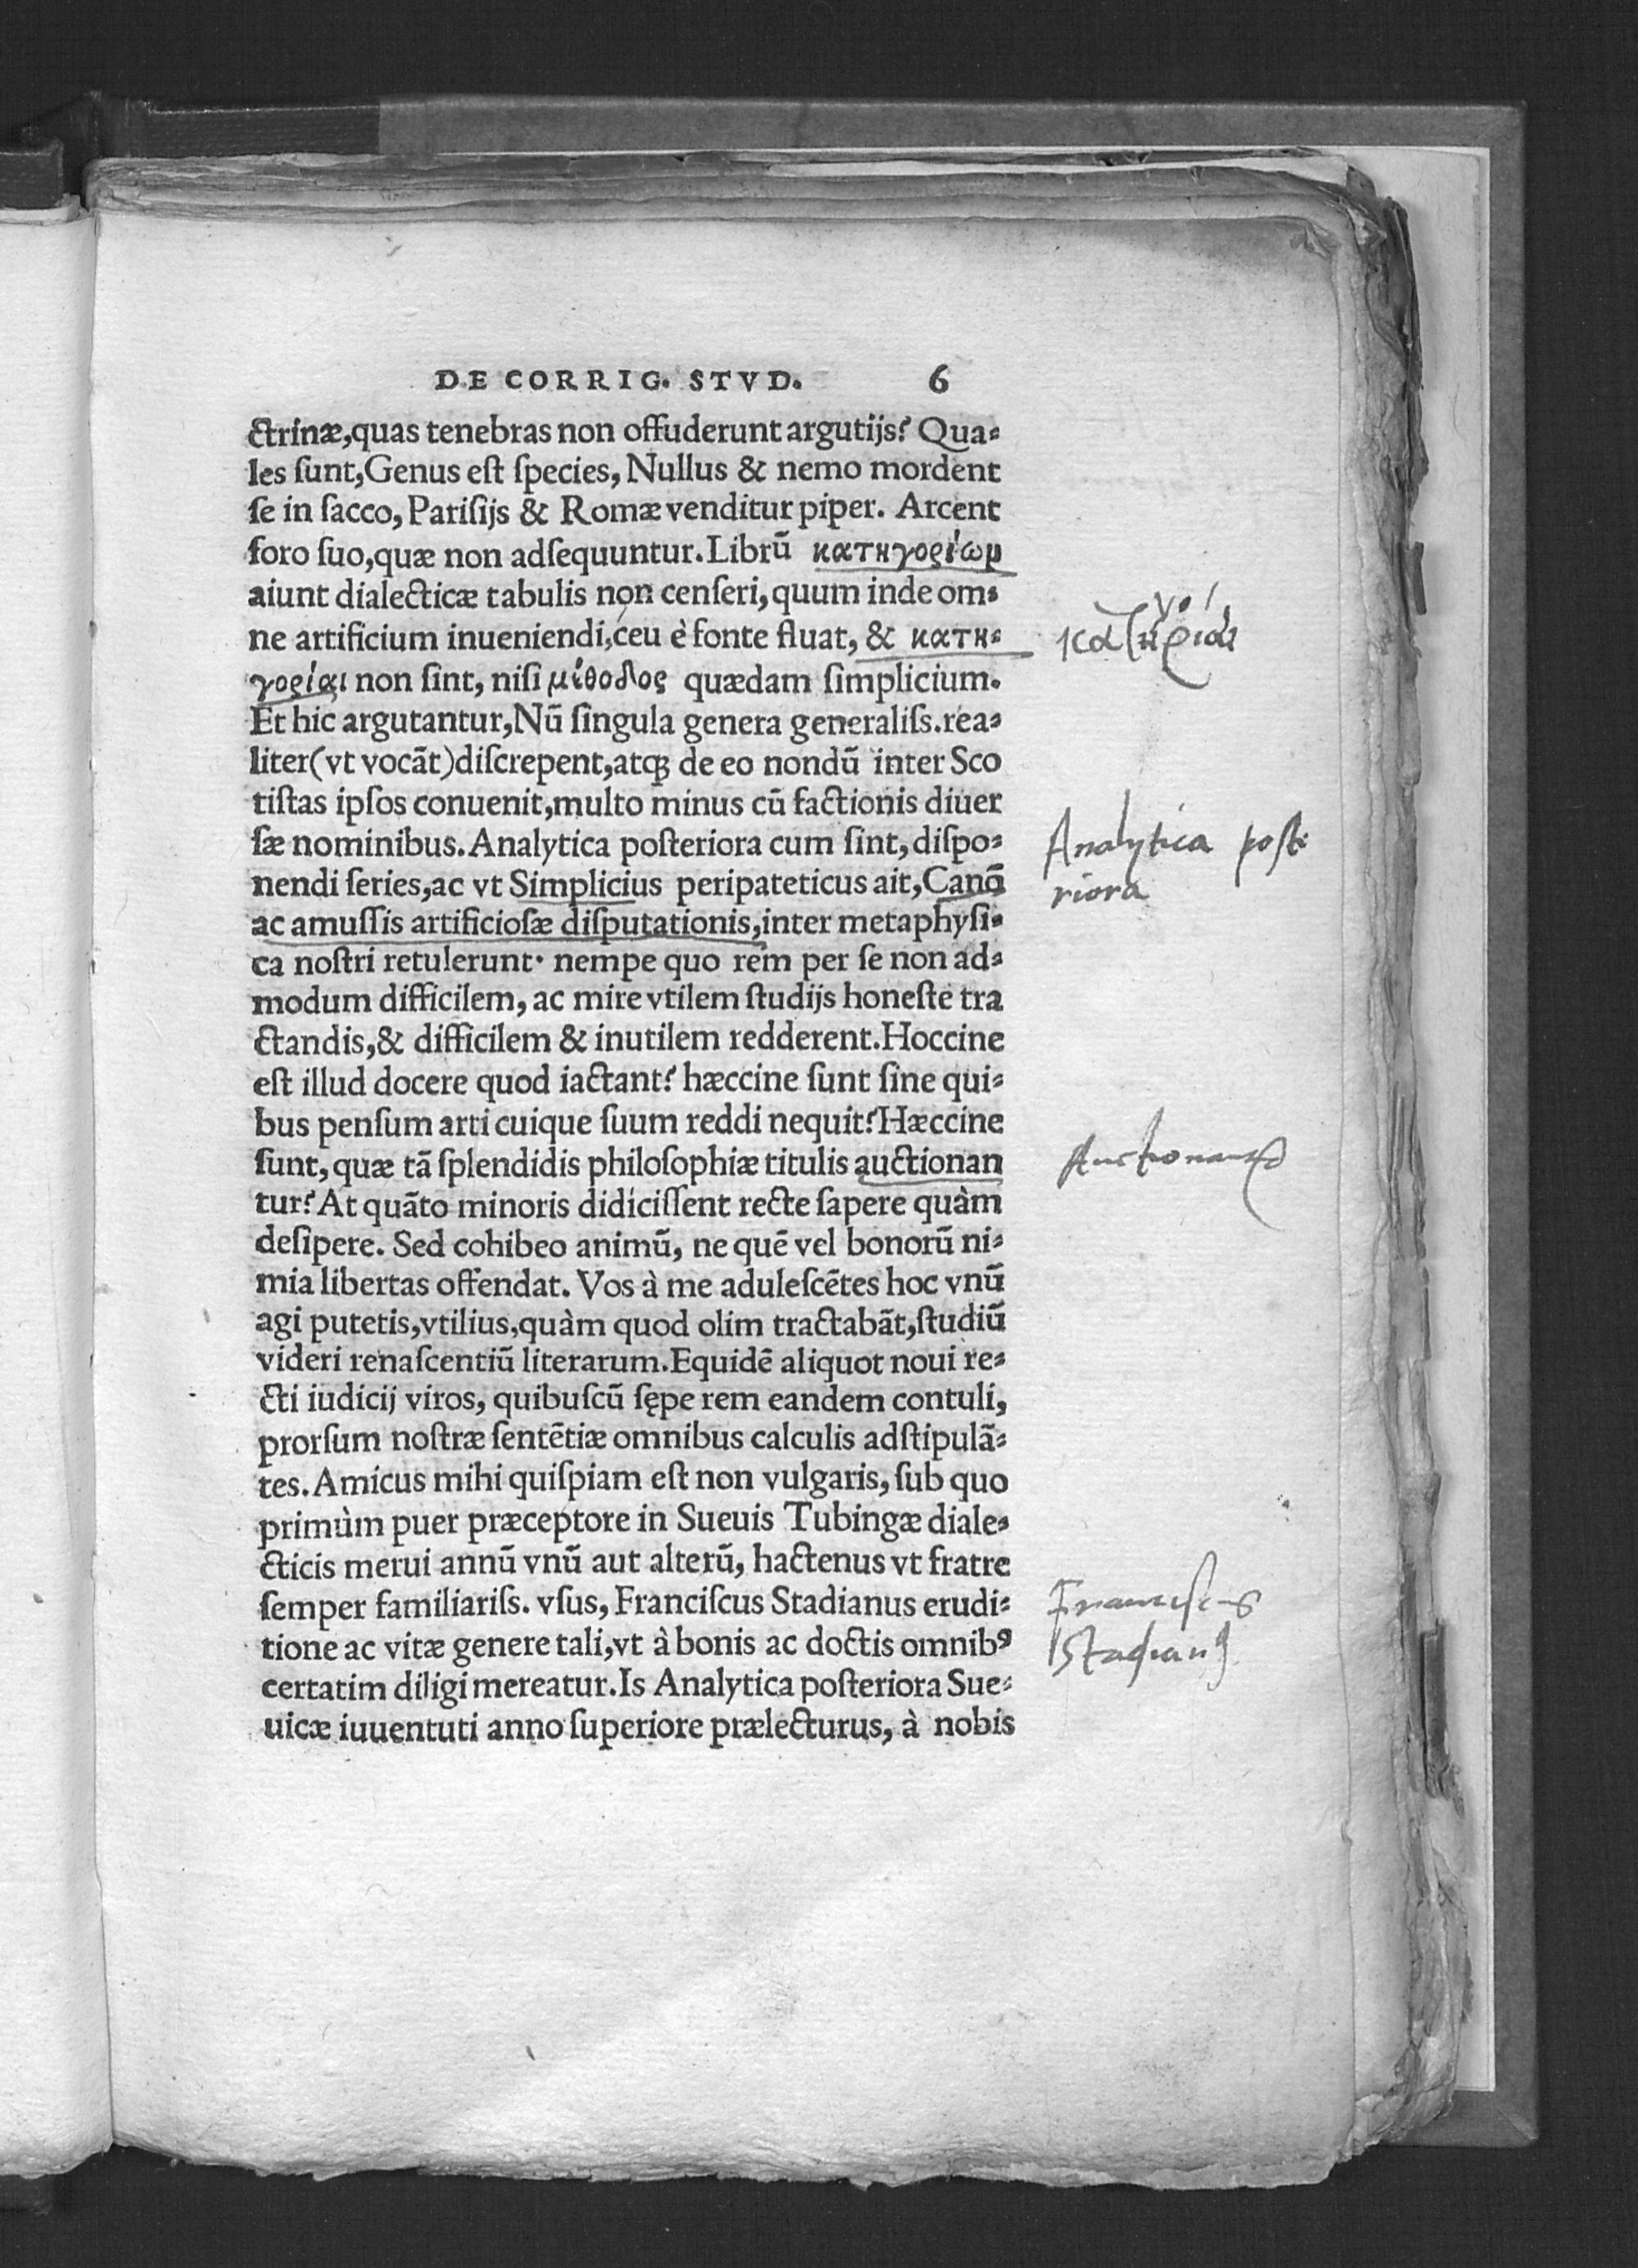 DE CORRIG. STVD. 6
ctrinæ,quas tenebras non offuderunt argutijs? Qua-
les ſunt,Genus eſt ſpecies, Nullus & nemo mordent
ſe in ſacco, Pariſijs & Romæ venditur piper. Arcent
foro ſuo,quæ non adſequuntur.Librũ κατηγοριών
aiunt dialecticæ tabulis non cenſeri, quum inde om-
ne artificium inueniendi,ceu è fonte fluat, & κατη-
γορίαι non ſint, niſi μέθοδος quædam ſimplicium.
Et hic argutantur,Nũ ſingula genera generaliſs.rea-
liter(vt vocãt)diſcrepent,atq́ꝫ de eo nondũ inter Sco
tiſtas ipſos conuenit,multo minus cũ factionis diuer
ſæ nominibus.Analytica poſteriora cum ſint, diſpo-
nendi ſeries,ac vt Simplicius peripateticus ait,Canõ
ac amuſſis artificioſæ diſputationis,inter metaphyſi-
ca noſtri retulerunt· nempe quo rem per ſe non ad-
modum difficilem, ac mire vtilem ſtudijs honeſte tra
ctandis,& difficilem & inutilem redderent.Hoccine
eſt illud docere quod iactant? hæccine ſunt ſine qui-
bus penſum arti cuique ſuum reddi nequit?Hæccine
ſunt, quæ tã ſplendidis philoſophiæ titulis auctionan
tur? At quãto minoris didiciſſent recte ſapere quàm
deſipere. Sed cohibeo animũ, ne quẽ vel bonorũ ni-
mia libertas offendat. Vos à me aduleſcẽtes hoc vnũ
agi putetis,vtilius,quàm quod olim tractabãt,ſtudiũ
videri renaſcentiũ literarum.Equidẽ aliquot noui re-
cti iudicij viros, quibuſcũ ſępe rem eandem contuli,
prorſum noſtræ ſentẽtiæ omnibus calculis adſtipulã-
tes.Amicus mihi quiſpiam eſt non vulgaris, ſub quo
primùm puer præceptore in Sueuis Tubingæ diale-
cticis merui annũ vnũ aut alterũ, hactenus vt fratre
ſemper familiariſs. vſus, Franciſcus Stadianus erudi-
tione ac vitæ genere tali,vt à bonis ac doctis omnibꝰ
certatim diligi mereatur.Is Analytica poſteriora Sue-
uicæ iuuentuti anno ſuperiore prælecturus, à nobis
κατηγορίαι
Analytica poſte
riora
Auctionantur
Franciſcus
Stadianꝰ